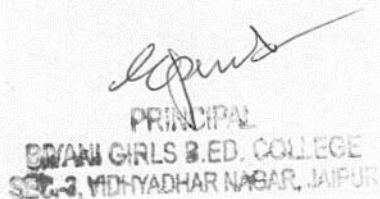 PRINCIPAL
BIYANI GIRLS B.ED. COLLEGE
SEC.-3, VIDHYADHAR NAGAR, JAIPUR